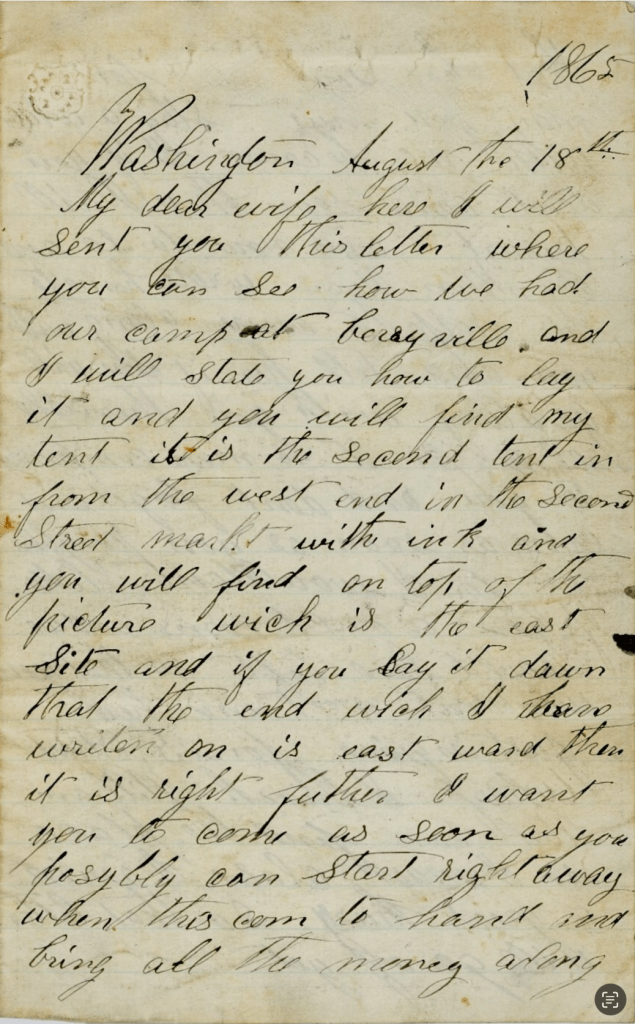 1865
Washington August the 18th
My dear wife here I will
sent you this letter where
you can see how we had
our camp at berryville and
I will state you how to lay
it and you will find my
tent it is the second tent in
from the west end in the second
Street markt with ink and
you will find on top of the
picture wich is the east
Site and if you Lay it dawn
that the end wich I have
writen on is east ward then
it is right futher I want
you to come as soon as you
posybly can start right away
when this com to hand and
bring all the money along